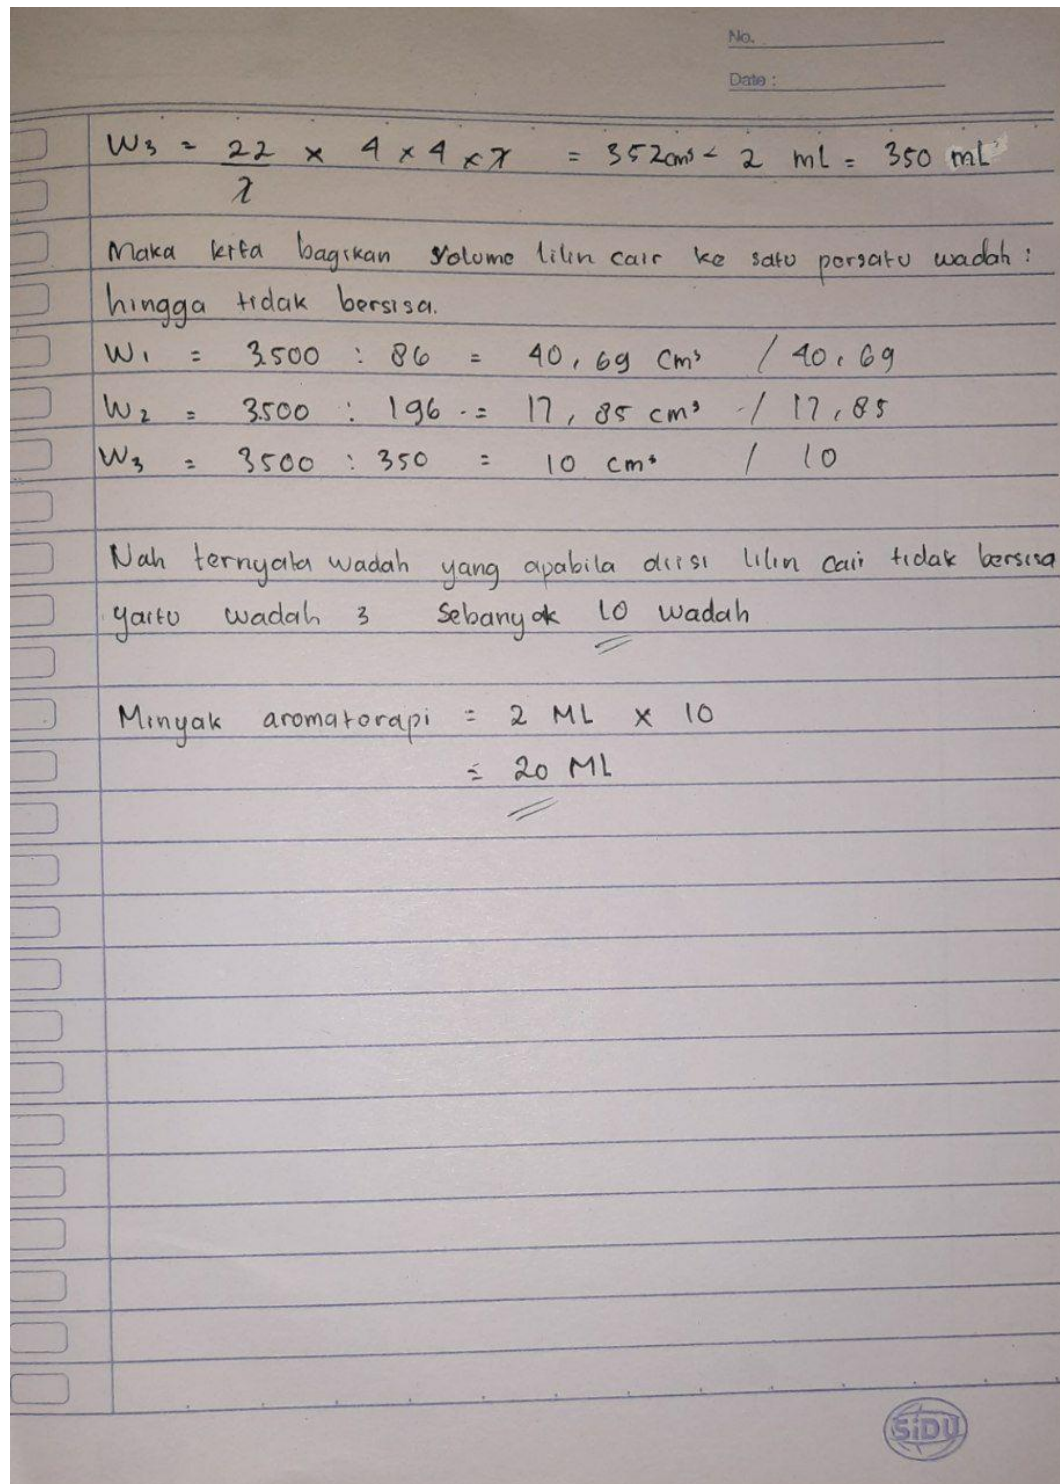 No.
Date :
W3 = 22 × 4 × 4 × 7 = 352cm³ - 2 ml = 350 mL
7
Maka kita bagikan Volume lilin cair ke satu persatu wadah :
hingga tidak bersisa.
W1 = 3500 : 86 = 40,69 Cm³ / 40,69
W2 = 3500 : 196 = 17,85 cm³ / 17,85
W3 = 3500 : 350 = 10 cm³ / 10
Nah ternyata wadah yang apabila diisi lilin cair tidak bersisa
yaitu wadah 3 Sebanyak 10 wadah
Minyak aromatorapi = 2 ML × 10
= 20 ML
SiDU